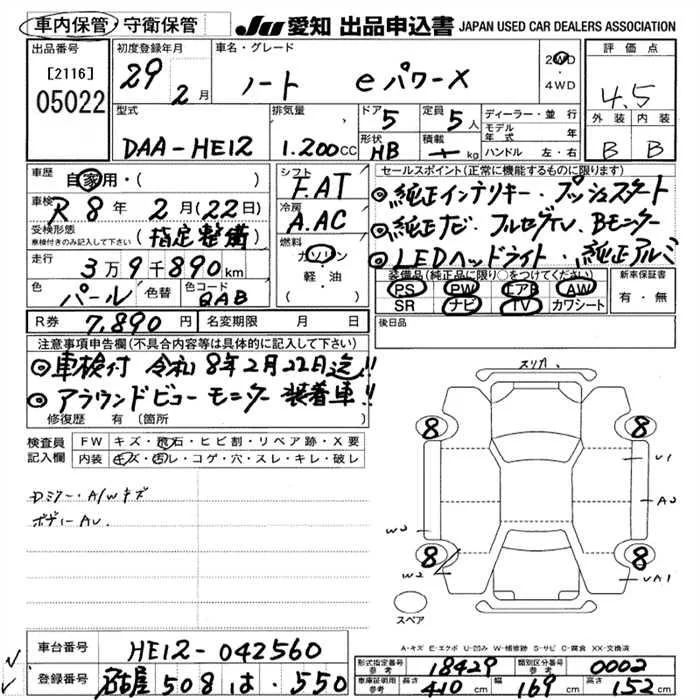 車内保管・守衛保管
JU 愛知 出品申込書 JAPAN USED CAR DEALERS ASSOCIATION
出品番号
[2116]
05022
初度登録年月
29年 2月
車名・グレード
ノート eパワーX
2WD・4WD
評価点
4.5
外装 内装
B B
型式
DAA-HE12
排気量
1.200cc
ドア 5
形状 HB
定員 5人
積載 kg
ディーラー・並行
モデル年式 年
ハンドル 左・右
車歴
自家用・( )
車検
R 8年 2月(22日)
受検形態
車検付きのみ記入して下さい
(指定整備)
走行
3万9千890km
色
パール
色替
色コード
QAB
シフト
F.AT
冷房
A.AC
燃料
ガソリン
軽・油
セールスポイント(正常に機能するものに限ります)
◎純正インテリキー・プッシュスタート
◎純正ナビ・フルセグTV、Bモニター
◎LEDヘッドライト・純正アルミ
装備品(純正品に限り○をつけてください)
PS PW エアB AW
SR ナビ TV カワシート
新車保証書
有・無
R券 7,890円
名変期限 月 日
後日品
注意事項申告欄(不具合内容等は具体的に記入して下さい)
◎車検付 令和8年2月22日迄!!
◎アラウンドビューモニター装着車!!
修復歴 有(箇所
検査員記入欄
FW キズ・飛石・ヒビ割・リペア跡・X要
内装 キズ・汚レ・コゲ・穴・スレ・キレ・破レ
Dミラー・A/Wキズ
ボディーAU.
スリカ
8 8
8 8
U1
A2
UA1
W2
W2
スペア
A-キズ E-エクボ U-凹み W-補修跡 S-サビ C-腐食 XX-交換済
車台番号 HE12-042560
登録番号 名古屋 508 は・550
型式指定番号 参考 18429
類別区分番号 参考 0002
車庫証明用 参考 長さ 410cm 幅 169cm 高さ 152cm